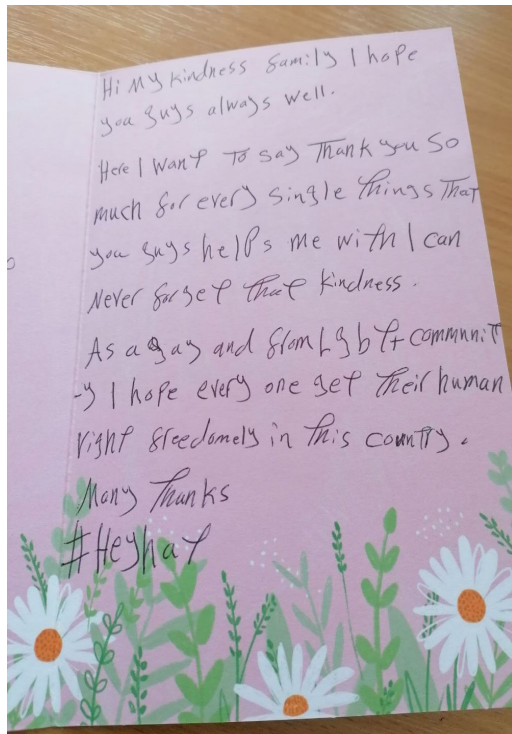 Hi My kindness family I hope
you guys always well.
Here I want To say Thank you So
much for every single things That
you guys helps me with I can
Never forget that kindness.
As a gay and from Lgbt+ communit
-y I hope every one get Their human
right freedomely in this country.
Many Thanks
#Heyhat